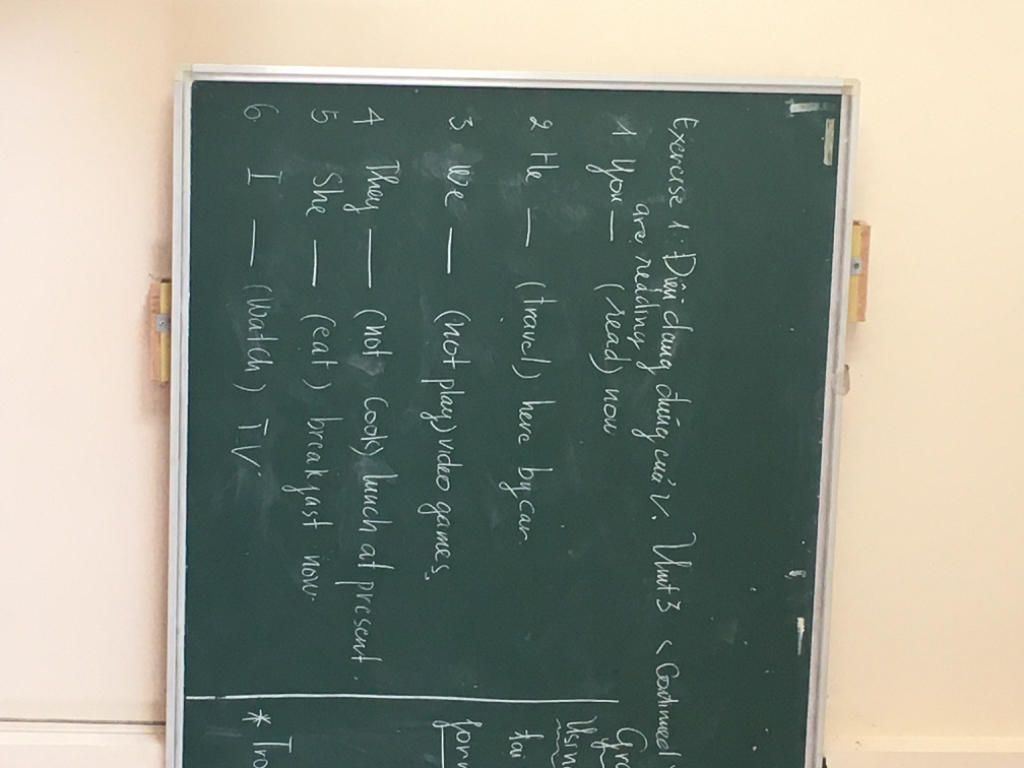 Unit 3 < Continued
Exercise 1: Điền dạng đúng của V.
are reading
1 You — (read) now
2 He — (travel) here by car.
3 We — (not play) video games.
4 They — (not cook) lunch at present.
5 She — (eat) breakfast now.
6 I — (watch) TV.
Gra
Using
tại
form
* Tro